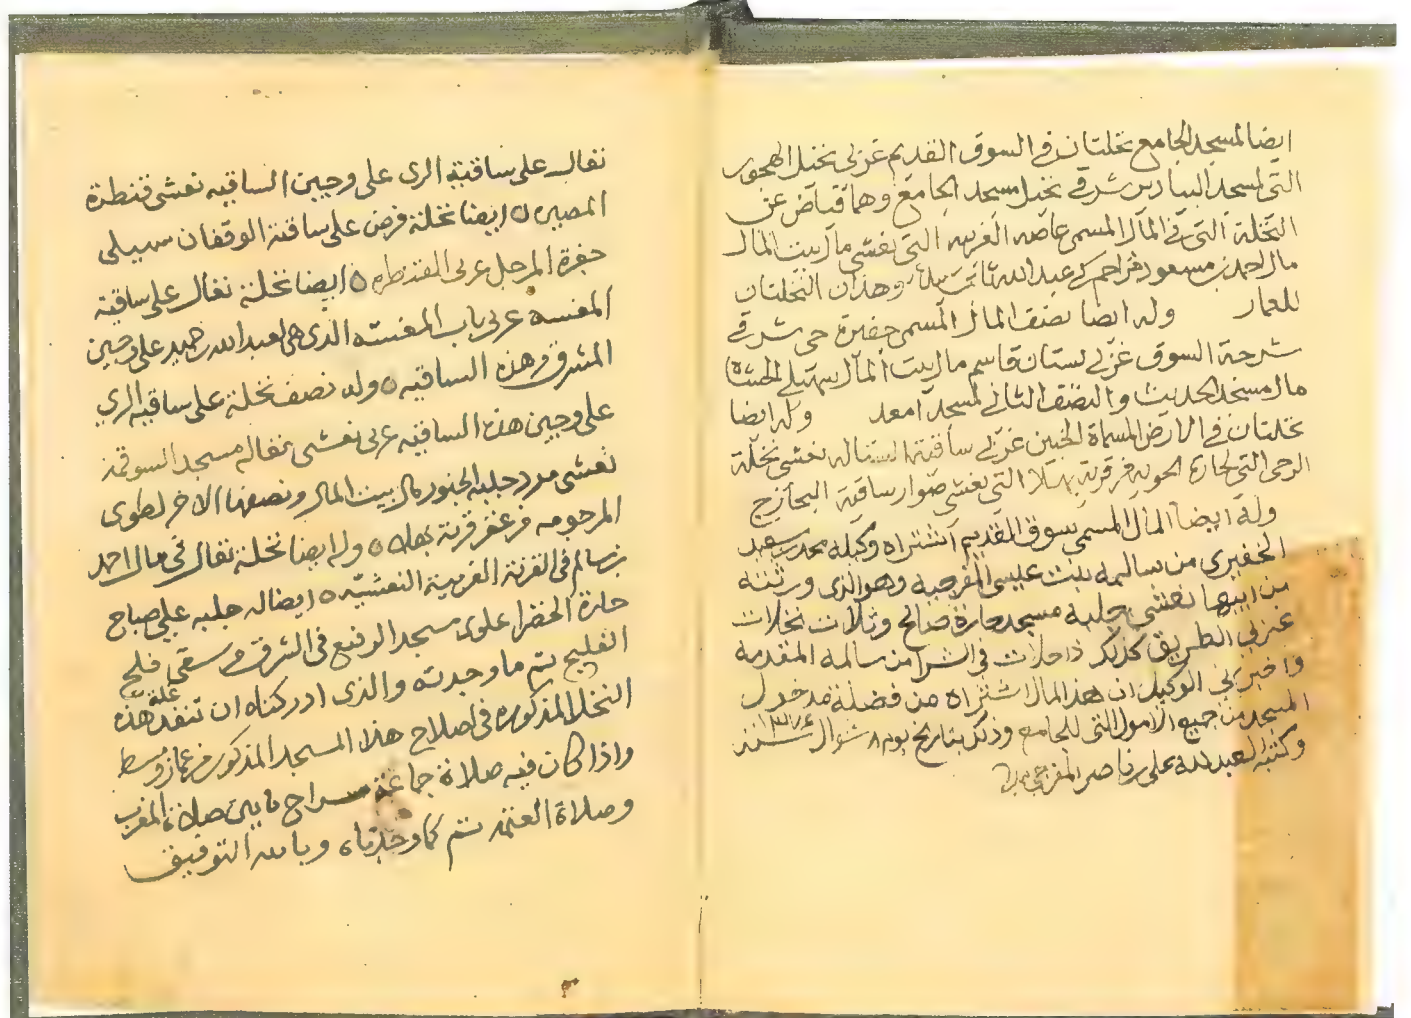 ايضا لمسجد الجامع نخلتان في السوق القديم غربي نخيل المهجور
التي لمسجد البيادر شرقي نخيل مسجد الجامع وهما قياض عن
النخلة التي في المال المسمى عاضد الغربيه التي تغشى مال بيت المال
مال احمد بن مسعود عبدالله وهذان النخلتان
للعمار وله ايضا نصف المال المسمى حفيرة حى شرقي
شرجة السوق غربي بستان قاسم مال بيت المال سهيلي
مال مسجد الحديث والنصف الثاني لمسجد وله ايضا
نخلتان في الارض المسماة غربي ساقية تغشى نخلة
الرحى التي لحارة من قرية بهلا التي تغشى صوار ساقية
وله ايضا المال المسمى سوق القديم اشتراه وكيله محمد بن سعيد
من سالمه بنت عيسى المفرجيه وهو الذي ورثته
من ابيها تغشى جلبه مسجد حارة صالح وثلاث نخلات
غربي الطريق كذلك داخلات في الشرا من سالمه المتقدمه
واخبرني الوكيل ان هذا المال اشتراه من فضلة مدخول
المسجد من جميع الامول التي للجامع وذلك بتاريخ يوم ٨ شوال سنة
وكتبه العبد لله علي بن ناصر المفرجي بيده
نغال على ساقية الري على وجيين الساقيه تغشى قنطرة
ايضا نخلة فرض على ساقية الوقفان سهيلي
حفرة المرجل غربي المقنطره ه ايضا نخلة نغال على ساقية
المغسه غربي باب الذي هي لعبد الله بن حميد على وجيين
المشرق من هذه الساقيه ه وله نصف نخلة على ساقيه الري
على وجيين هذه الساقيه غربي تغشى نغاله مسجد السوقمه
تغشى مرد جلبه الجنور مال بيت المال ونصفها الاخر لطوى
المرجومه من قرية بهلا ه وله ايضا نخلة نغال في مال احمد
بن سالم في القرنة الغربية النعشيه ه ايضا له جلبه على صباح
حارة الخضرا علوى مسجد الرفيع في الشرق من سقى فلج
الفليج تم ما وجدته والذى ادركناه ان تنفذ غلة هذه
النخل المذكوره في اصلاح هذا المسجد المذكور من عماز وبسط
واذا كان فيه صلاة جماعة سراج ما بين صلاة المغرب
وصلاة العتمه تم كما وجدناه وبالله التوفيق